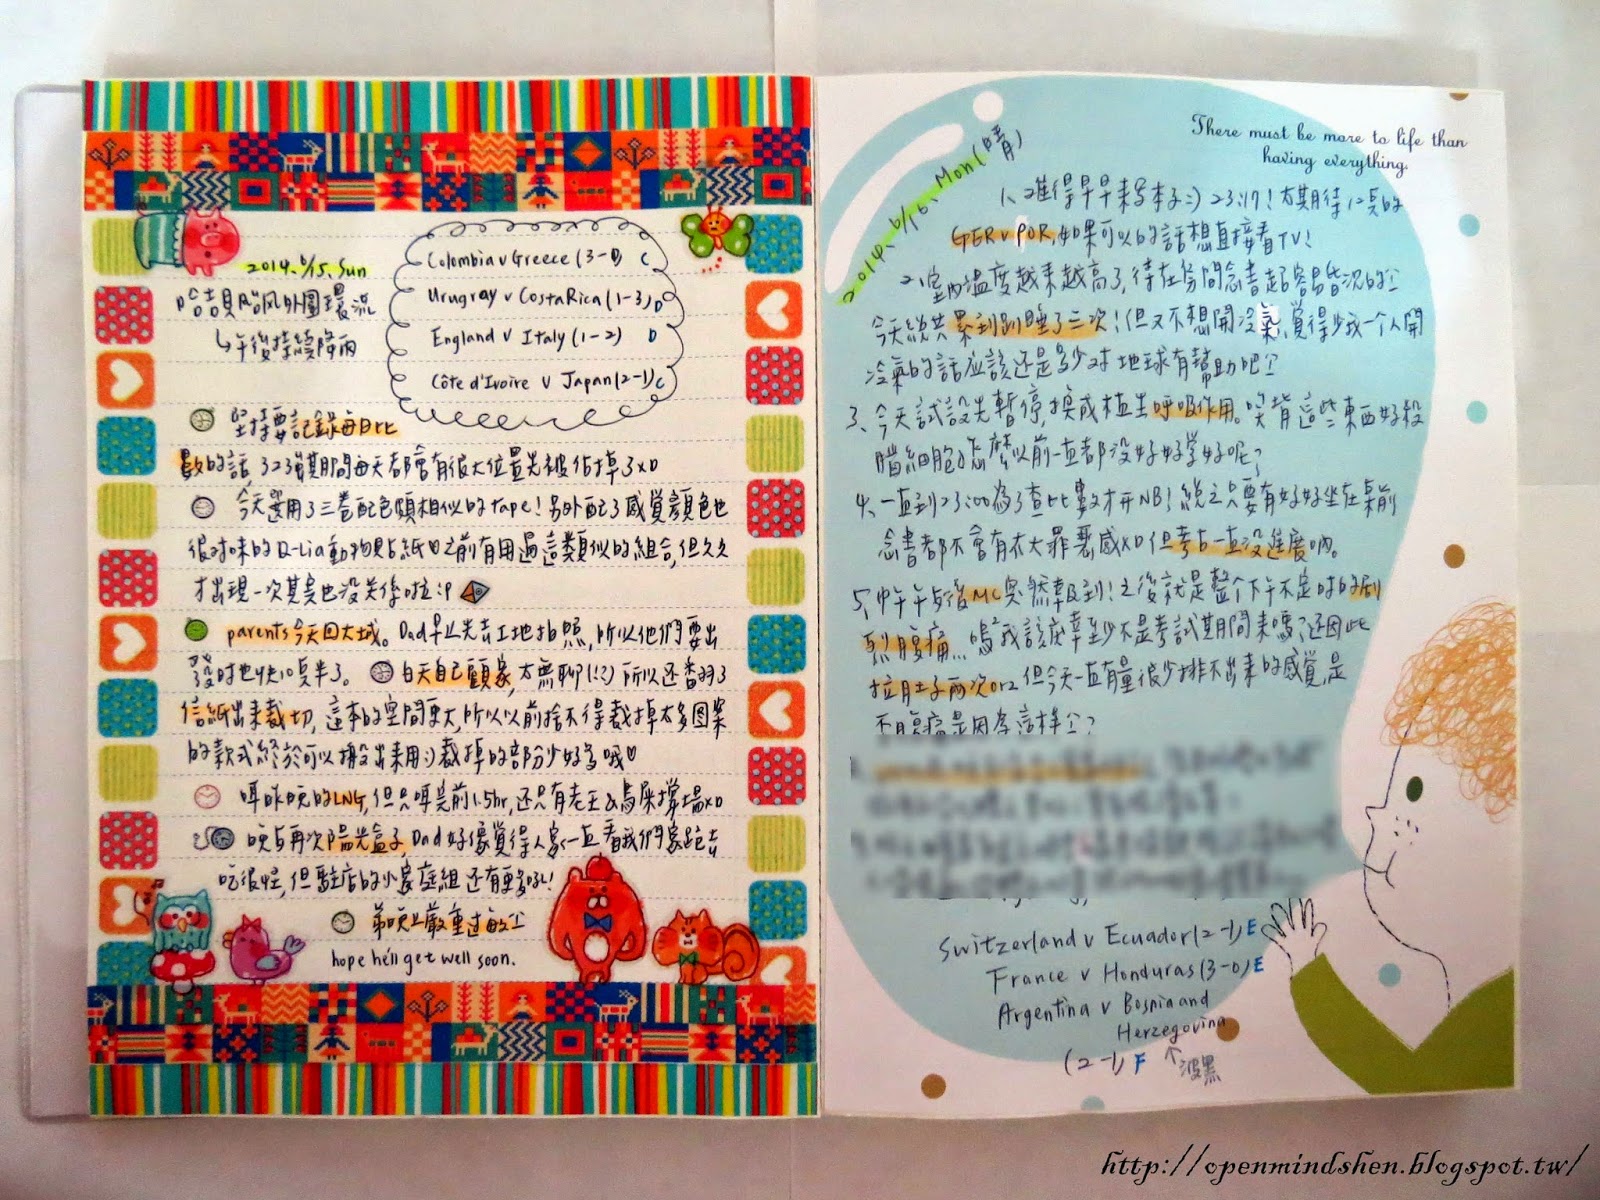 2014. 6/15. Sun
哈吉貝颱風外圍環流
↳午後持續降雨
Colombia v Greece (3-0) C
Urugray v Costa Rica (1-3) D
England v Italy (1-2) D
Côte d'Ivoire v Japan (2-1) C
堅持要記錄每日比
數的話，323賽期間每天都會有很大位置先被佔掉了XD
今天選用了三卷配色頗相似的tape！另外配了感覺顏色也
很對味的Q-Lia動物貼紙♡之前有用過這類似的組合，但久久
才出現一次其實也沒关係啦:P
parents今天回大城。Dad早上先去工地拍照，所以他們要出
發时也快10点半了。白天自己顧家，太無聊(!?)所以还翻了
信紙出來裁切，這本的空間更大，所以以前捨不得裁掉太多图案
的款式終於可以搬出來用:)裁掉的部分少好多哦♡
昨晚的LNG，但只前1.5hr，还只有老王&鳥屎撐場XD
晚上再次陽光盒子，Dad好像覺得人家一直看我們家跑去
吃很怪，但駐店的小家庭組还有更多吼！
弟晚上嚴重过敏
hope he'll get well soon.
There must be more to life than
having everything.
2014. 6/16. Mon (晴)
1、難得早早來写本子:) 23:17！太期待12点的
GER v POR，如果可以的話想直接看TV！
2、室內溫度越來越高了，待在房間念書超容易昏沉的
今天總共累到趴睡了三次！但又不想開冷氣，覺得少我一个人開
冷氣的話应該还是多少对地球有幫助吧
3、今天試設先暫停，換成植生呼吸作用。唉背這些東西好殺
腦細胞，怎麼以前一直都沒好好学好呢？
4、一直到23:00為了查比數才开NB！總之只要有好好坐在桌前
念書都不會有太大罪惡感XD但考古一直沒進度吶。
5、中午午后後MC突然報到！之後就是整个下午不定时的劇
烈腹痛，嗚我該慶幸至少不是考試期間來嗎？还因此
拉肚子兩次orz但今天一直有量很少排不出來的感覺，是
不
Switzerland v Ecuador (2-1) E
France v Honduras (3-0) E
Argentina v Bosnia and
Herzegovina
(2-1) F ↑波黑
http://openmindshen.blogspot.tw/